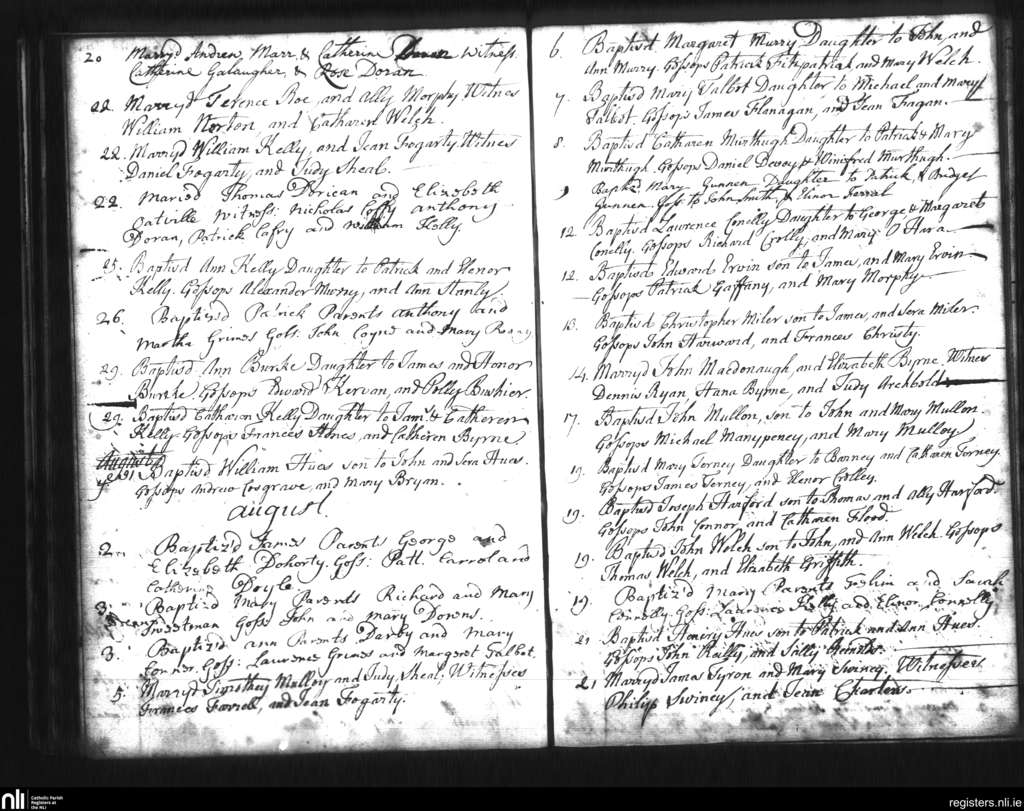 20 Marryd Andrew Marr & Catherine Doran Witness
Catherine Galaugher, & Rose Doran
22. Marryd Terence Roe, and Ally Morphy Witnes
William Norton, and Catharen Welch.
22. Marryd William Kelly, and Jean Fogarty Witnes
Daniel Fogarty, and Judy Sheal.
22. Maried Thomas Dorican and Elizebeth
Oatville Witness: Nicholas Coffy anthony
Doran, Patrick Caffry and William Kelly
25. Baptisd Ann Kelly Daughter to Patrick and Elenor
Kelly. Gossops Alexander Murny, and Ann Stanly
26. Baptized Patrick Parents anthony and
Martha Grimes Goss: John Coyne and Mary
29. Baptisd Ann Burke Daughter to James and Honor
Burke. Gossops Edward Kervan, and Polly Bushier.
29. Baptisd Catharen Kelly Daughter to Jams & Catheren
Kelly Gossops Frances and Catheren Byrne
August
ye 1 Baptisd William Hues son to John and Sera Hues.
Gossops Andrew Cosgrave, and Mary Bryan.
august.
2 Baptiz'd James Parents George and
Elizebeth Dohorty. Goss: Patt. Carrol and
Catherine Doyle
3. Baptiz'd Mary Parents Richard and Mary
Sweetman Goss John and Mary Downs.
3. Baptiz'd ann Parents Darby and Mary
Conner Goss: Laurence Grimes and Margeret Talbot.
5. Marryd Timothey Mulloy and Judy Sheal. Witnesses
Frances Farrell, and Jean Fogarty.
6. Baptisd Margaret Murry Daughter to John, and
Ann Murry. Gossops Patrick Fitzpatrick and Mary Welch.
7. Baptisd Mary Talbot Daughter to Michael and Mary
Talbot. Gossops James Flanagan, and Jean Fragan.
8. Baptisd Catharen Murthugh Daughter to Patrick & Mary
Murthugh. Gossops Daniel Devoy & Winifred Murthugh.
9 Baptzd. Mary Gunnen Daughter to Patrick, & Bridget
Gunnen. Goss to John Smith, & Elinor
12. Baptisd Lawrence Conelly Daughter to George & Margaret
Conelly. Gossops Richard Crolly, and Mary O Hara.
12. Baptisd Edward Ervin son to James, and Mary Ervin
Gossops Patrick Gaffany, and Mary Morphy.
13. Baptisd Christopher Miler son to James, and Sera Miler.
Gossops John Harward, and Frances Christy.
14. Marryd John Macdonaugh, and Elizabeth Byrne, Witnes
Dennis Ryan, Hana Byrne, and Judy Archbold
17. Baptisd John Mullon, son to John and Mary Mullon
Gossops Michael Manypeney, and Mary Mulloy
19. Baptisd Mary Torney Daughter to Banney and Catharen Torney.
Gossops James Torney, and Elenor Crolley.
19. Baptisd Joseph Harford son to Thomas and Ally Harford.
Gossops John Connor, and Catharen Flood.
19. Baptisd John Welch son to John, and Ann Welch. Gossops
Thomas Welch, and Elizabeth Griffith.
19. Baptiz'd Mary Parents and Sarah
Connelly Goss: Laurence Kelly and Elenor Connelly
21 Baptisd Henery Hues son to Patrick and Ann Hues.
Gossops John Reilly, and Sally
21 Marryd James Tyron and Mary Swiney, Witnesses
Philip Swiney, and Jean Charters.
nli Catholic Parish
Registers at
the NLI
registers.nli.ie